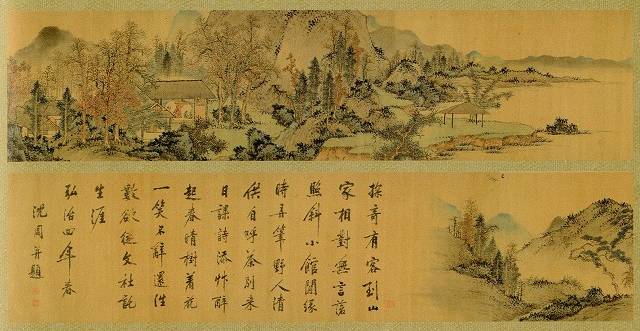 探奇有客到山
家相對無言落
照斜小館閒緣
時弄筆野人清
供自呼茶別來
日課詩流醉
起春晴樹著花
一笑名辭還往
數欲從文社託
生涯
弘治四年春
沈周并題